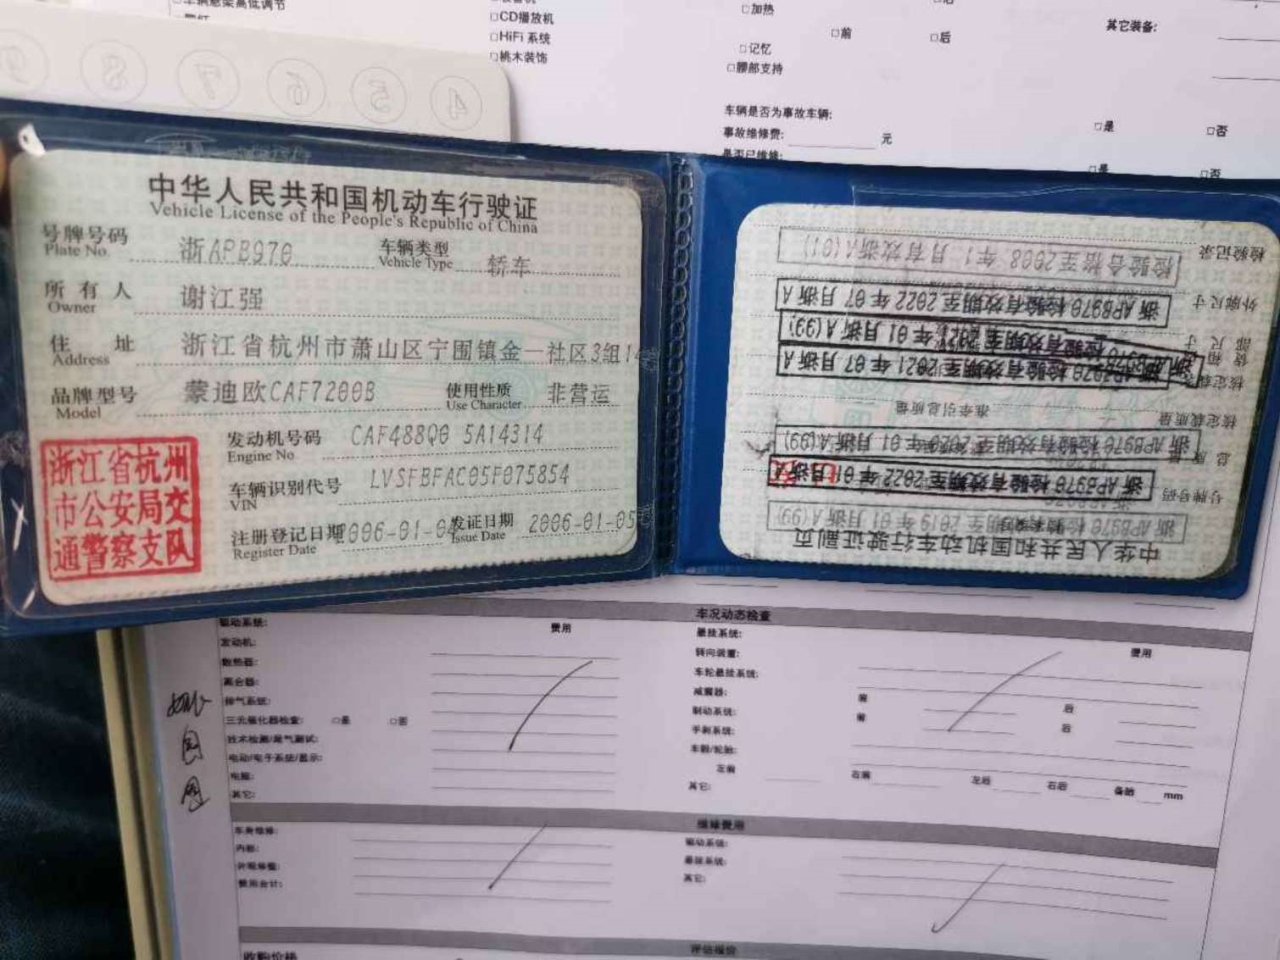 车辆悬架高低调节
□CD播放机
□HiFi 系统
□桃木装饰
□加热
□前
□后
□记忆
□腰部支持
其它装备:
车辆是否为事故车辆:
□是
□否
事故维修费:
元
是否已维修:
□是
□否
4
5
6
7
8
9
中华人民共和国机动车行驶证
Vehicle License of the People's Republic of China
号牌号码 浙APB970 车辆类型 轿车
Plate No. Vehicle Type
所有人 谢江强
Owner
住址 浙江省杭州市萧山区宁围镇金一社区3组
Address
品牌型号 蒙迪欧CAF7200B 使用性质 非营运
Model Use Character
浙江省杭州
市公安局交
通警察支队
发动机号码 CAF488Q0 5A14314
Engine No
车辆识别代号 LVSFBFAC05F075854
VIN
注册登记日期 2006-01-0 发证日期 2006-01-05
Register Date Issue Date
中华人民共和国机动车行驶证副页
浙APB970 检验有效期至2019年01月浙A(99)
号牌号码
浙APB970 检验有效期至2022年01月浙A
总质量
浙APB970 检验有效期至2020年01月浙A(99)
核定载质量
准牵引总质量
核定载
浙APB970 检验有效期至2021年07月浙A
年01月浙A(99)
外廓尺寸
浙APB970 检验有效期至2022年07月浙A
检验记录
检验合格至2008年1月有效浙A(01)
车况动态检查
驱动系统:
费用
发动机:
散热器:
离合器:
排气系统:
三元催化器检查: □是 □否
技术检测/尾气测试:
电动/电子系统/显示:
电瓶:
其它:
悬挂系统:
费用
转向装置:
车轮悬挂系统:
减震器: 前 后
制动系统: 前 后
手刹系统:
车辋/轮胎:
左前 右前 左后 右后 备胎 mm
其它:
维修费用
车身维修:
内部:
外观保养:
费用合计:
驱动系统:
悬挂系统:
其它:
评估报价
收购价格